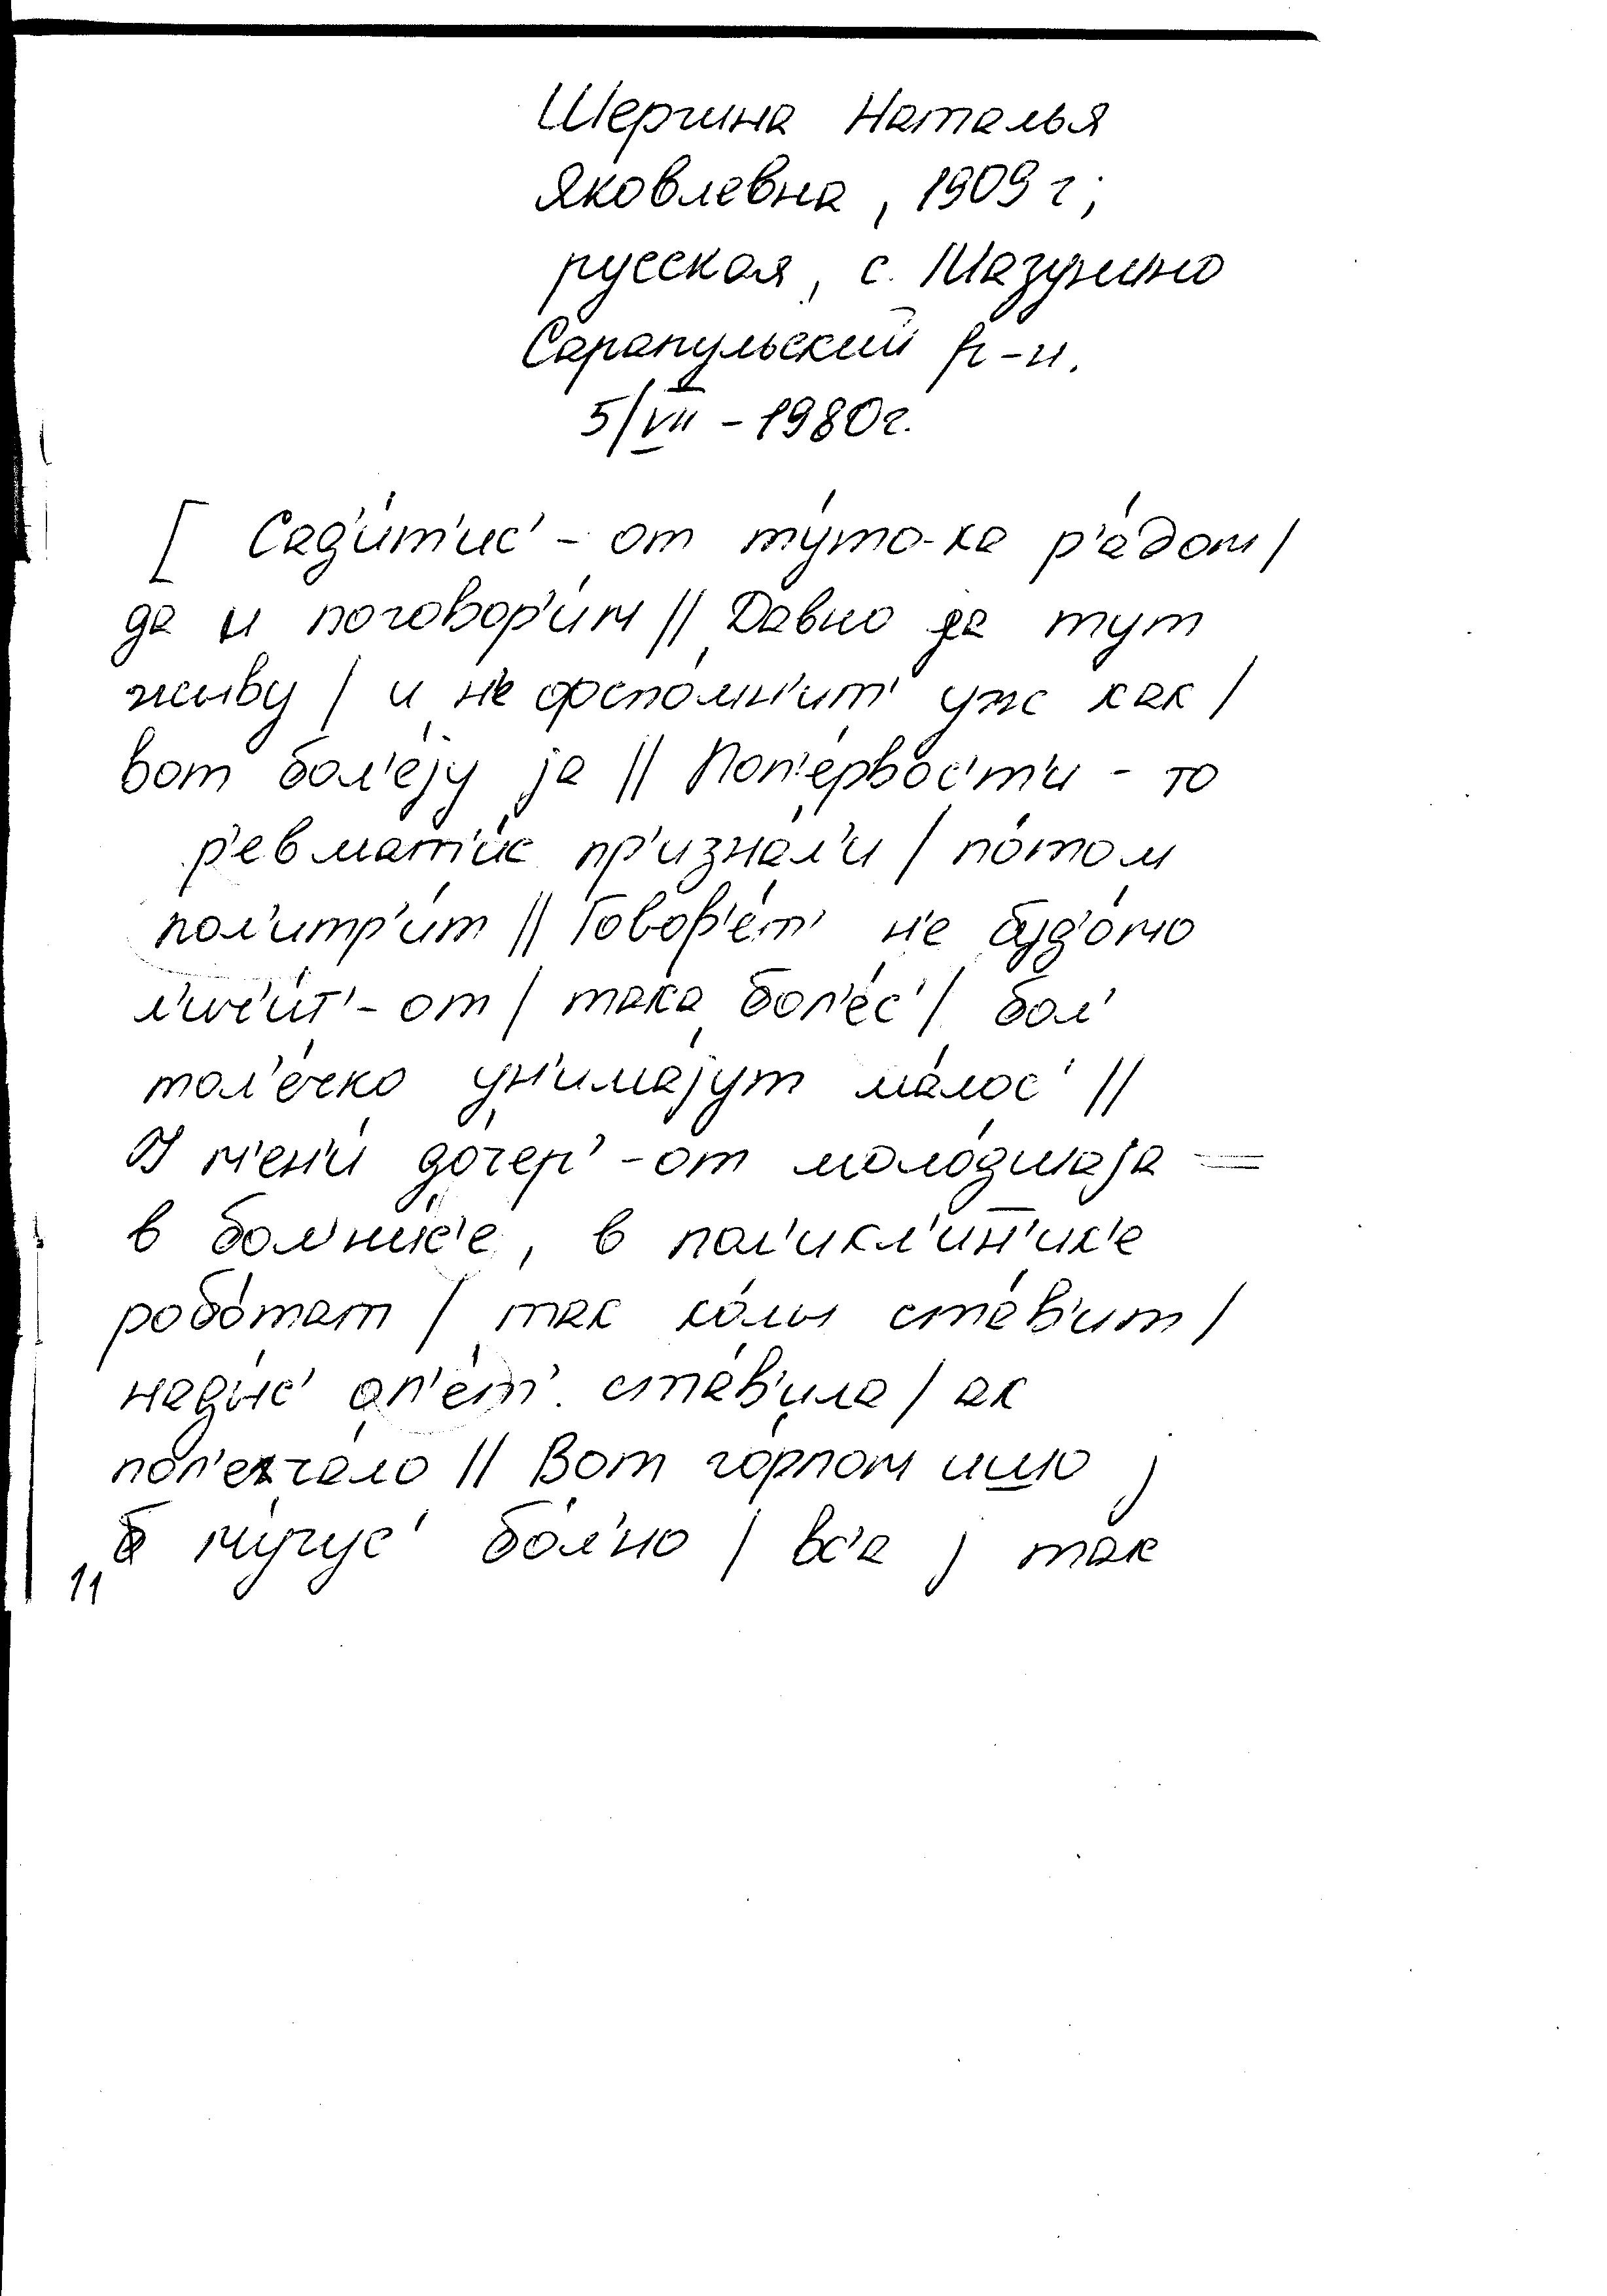 Шергина Наталья
Яковлевна, 1909 г;
русская, с. Мазунино
Сарапульский р-н.
5/VII – 1980г.
[ Сад'и́т'ис' – от ту́то-ка р'а́дом /
да и поговор'и́м // Давно ја тут
живу / и н'е фспо́мн'ит' уж как /
вот бол'е́јy ја // Поп'е́рвос'т'и – то
р'евмат'и́с пр'изна́л'и / по́том
пол'итр'и́т // Говор'е́т' н'е буд'о́мо
л'ич'и́т' – от / така бол'е́с' / бол'
тол'е́чко ун'има́јут ма́лос' //
У м'ен'и́ до́чер' – от моло́дшаја —
в бол'н'и́к'е, в пол'икл'и́н'ик'е
робо́тат / так ко́лы ста́в'ит /
нады́с' оп'е́т' ста́в'ила / ак
пол'екча́ло // Вот го́рлом ишо ј
б му́чус' бо́л'но / вс'а ј так
11